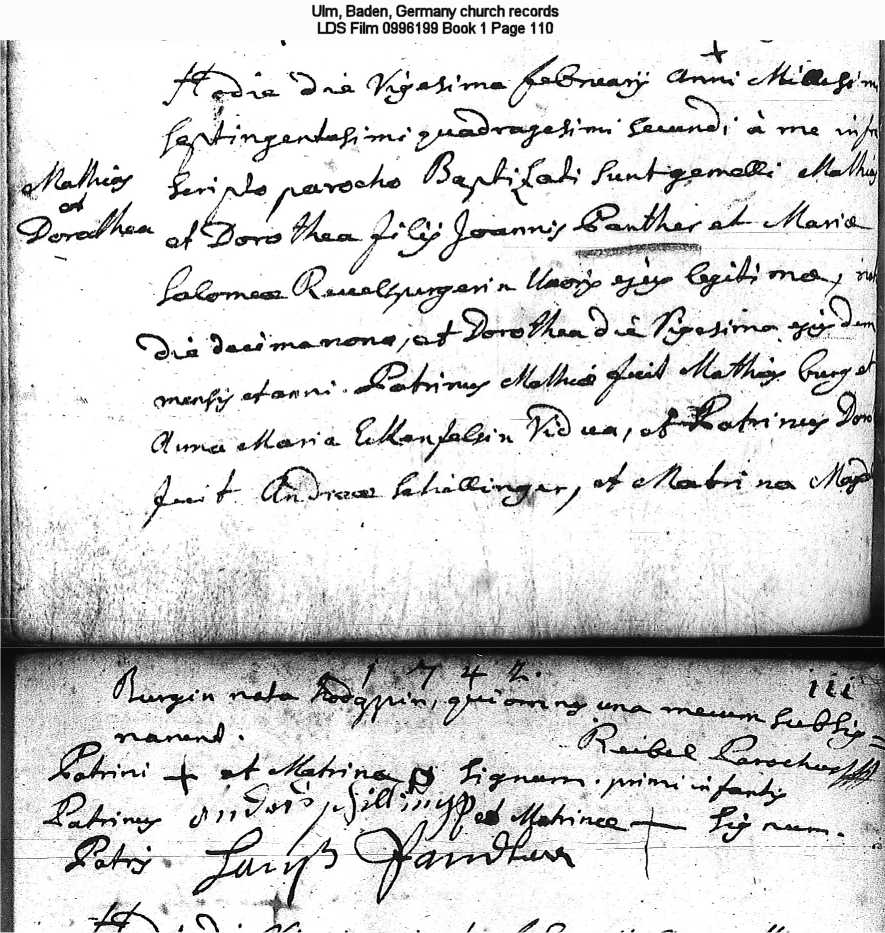 Ulm, Baden, Germany church records
LDS Film 0996199 Book 1 Page 110
Hodie die Vigesima februarij Anni Millesimi
septingentesimi quadragesimi secundi à me infra
Mathias et Dorothea
scripto parocho Baptizati sunt gemelli Mathias
et Dorothea filij Joannis Panther et Mariæ
Salomeæ Uxoris ejus legitimæ,
die decima nona, et Dorothea die Vigesima ejusdem
mensis et anni. Patrinus Mathiæ fuit Mathias burg et
Anna Maria Eckenfelsin Vidua, et Patrinus Doro
fuit Andreæ Schillinger, et Matrina Magd
1742.
111
Burgin nata qui omnes una mecum subsig=
narunt.
Reibel Parochus
Patrini + et Matrina signum. primi infantis
Patrinus et Matrinæ + signum.
Patris